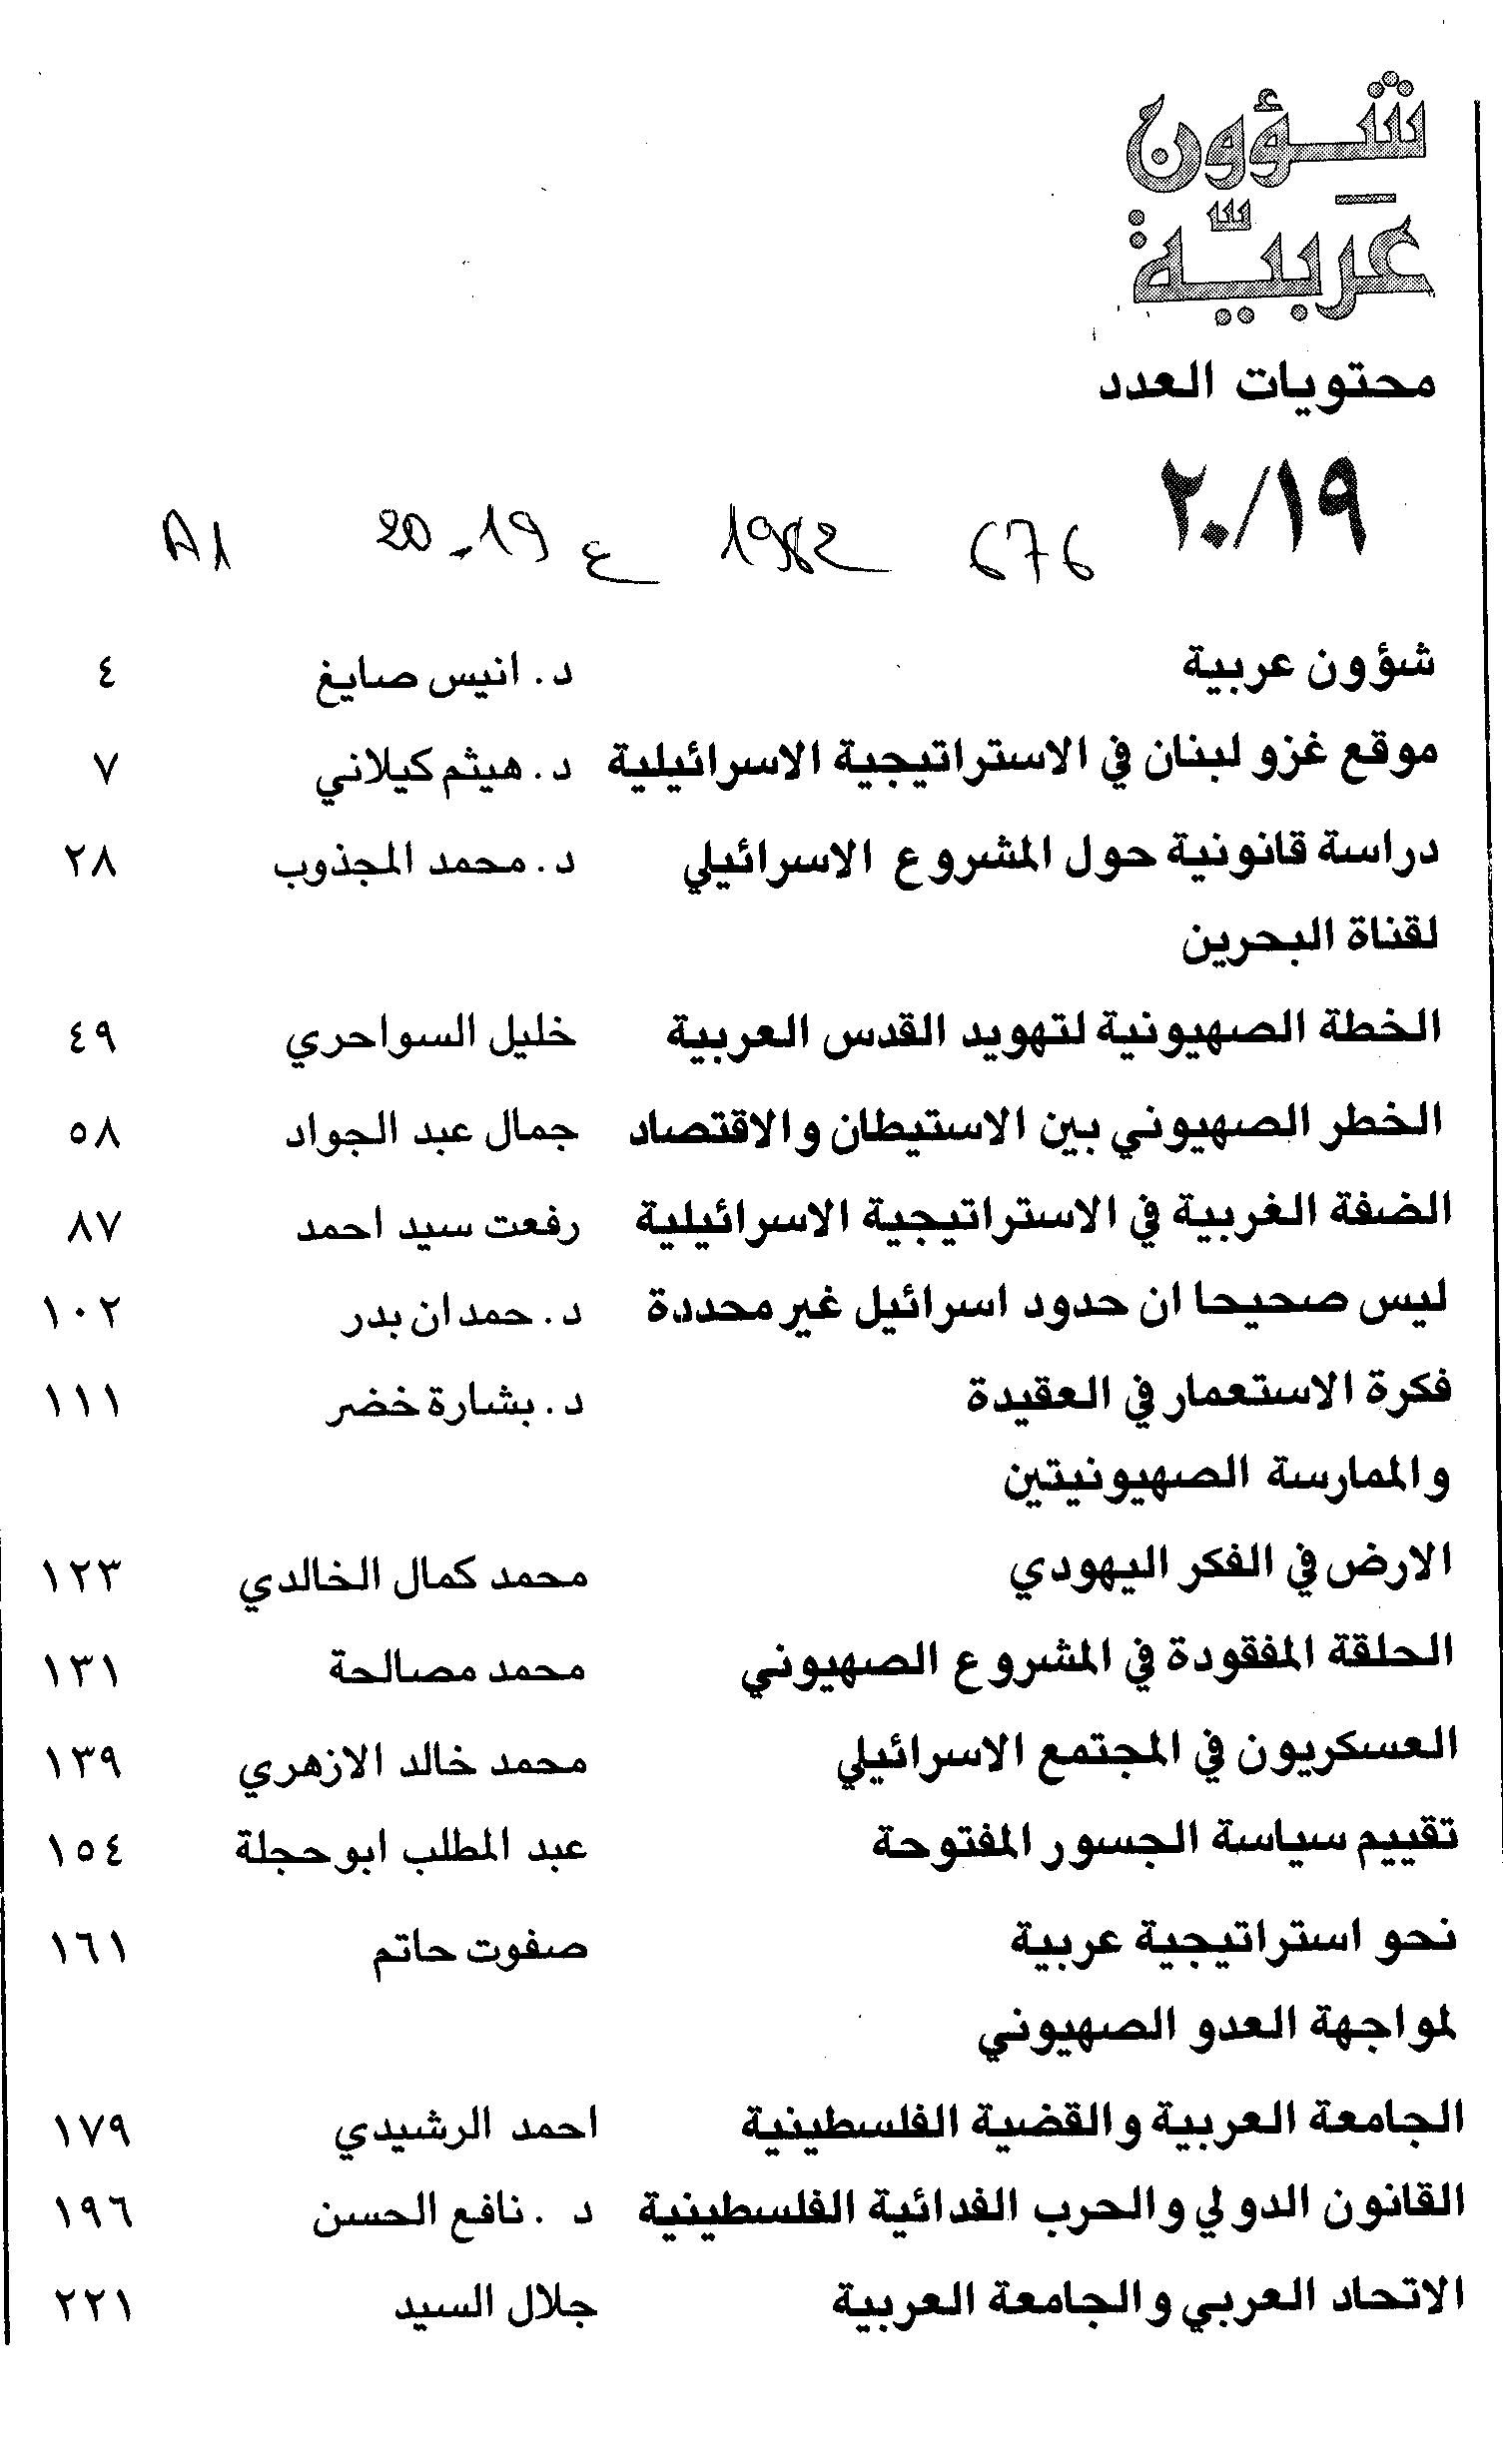 شؤون
عربية
محتويات العدد
٢٠/١٩
676 1982 ع 19-20 A1
شؤون عربية د. انيس صايغ ٤
موقع غزو لبنان في الاستراتيجية الاسرائيلية د. هيثم كيلاني ٧
دراسة قانونية حول المشروع الاسرائيلي د. محمد المجذوب ٢٨
لقناة البحرين
الخطة الصهيونية لتهويد القدس العربية خليل السواحري ٤٩
الخطر الصهيوني بين الاستيطان والاقتصاد جمال عبد الجواد ٥٨
الضفة الغربية في الاستراتيجية الاسرائيلية رفعت سيد احمد ٨٧
ليس صحيحا ان حدود اسرائيل غير محددة د. حمدان بدر ١٠٢
فكرة الاستعمار في العقيدة د. بشارة خضر ١١١
والممارسة الصهيونيتين
الارض في الفكر اليهودي محمد كمال الخالدي ١٢٣
الحلقة المفقودة في المشروع الصهيوني محمد مصالحة ١٣١
العسكريون في المجتمع الاسرائيلي محمد خالد الازهري ١٣٩
تقييم سياسة الجسور المفتوحة عبد المطلب ابو حجلة ١٥٤
نحو استراتيجية عربية صفوت حاتم ١٦١
لمواجهة العدو الصهيوني
الجامعة العربية والقضية الفلسطينية احمد الرشيدي ١٧٩
القانون الدولي والحرب الفدائية الفلسطينية د . نافع الحسن ١٩٦
الاتحاد العربي والجامعة العربية جلال السيد ٢٢١